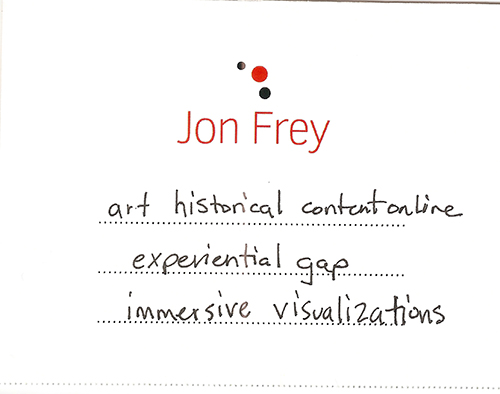 Jon Frey
art historical content online
experiential gap
immersive visualizations